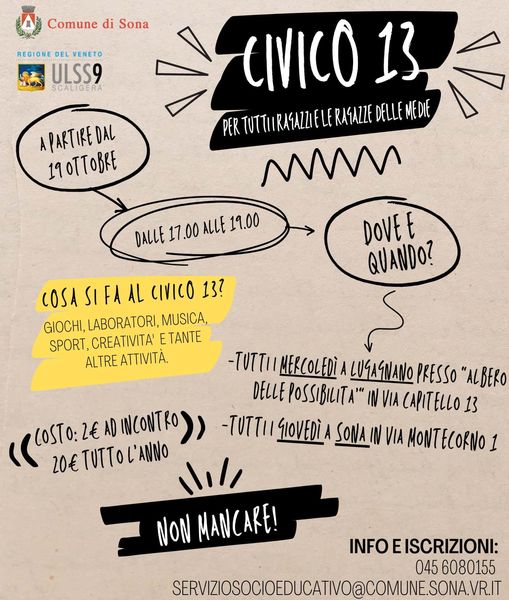 Comune di Sona
REGIONE DEL VENETO
ULSS9
SCALIGERA
CIVICO 13
PER TUTTI I RAGAZZI E LE RAGAZZE DELLE MEDIE
A PARTIRE DAL
19 OTTOBRE
DALLE 17.00 ALLE 19.00
DOVE E
QUANDO?
COSA SI FA AL CIVICO 13?
GIOCHI, LABORATORI, MUSICA,
SPORT, CREATIVITA' E TANTE
ALTRE ATTIVITÀ.
-TUTTI I MERCOLEDÌ A LUGAGNANO PRESSO "ALBERO
DELLE POSSIBILITA'" IN VIA CAPITELLO 13
-TUTTI I GIOVEDÌ A SONA IN VIA MONTECORNO 1
COSTO: 2€ AD INCONTRO
20€ TUTTO L'ANNO
NON MANCARE!
INFO E ISCRIZIONI:
045 6080155
SERVIZIOSOCIOEDUCATIVO@COMUNE.SONA.VR.IT